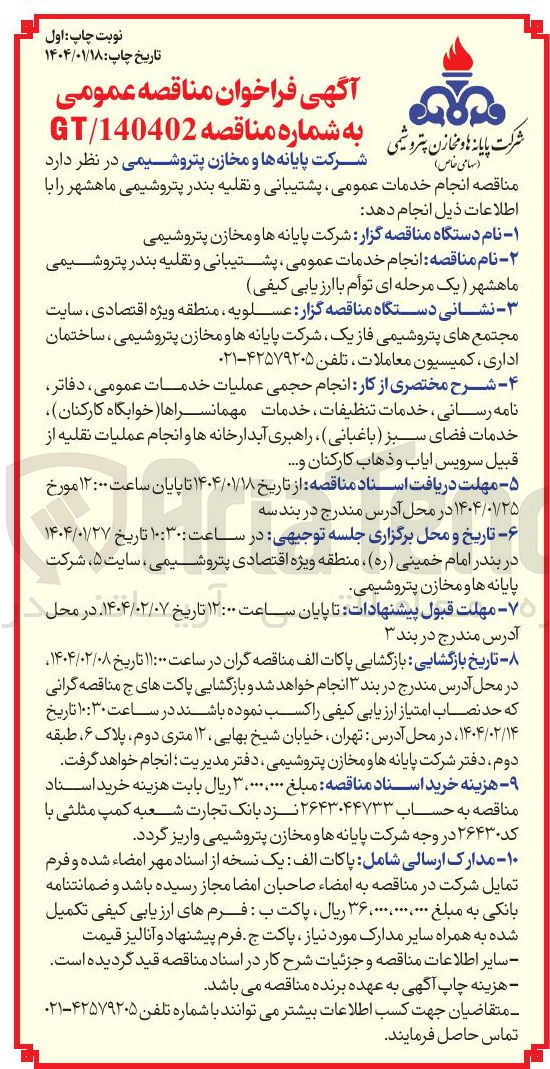 نوبت چاپ: اول
تاریخ چاپ: ۱۴۰۴/۰۱/۱۸
آگهی فراخوان مناقصه عمومی
به شماره مناقصه GT/140402
شرکت پایانه ها و مخازن پتروشیمی
(سهامی خاص)
شرکت پایانه ها و مخازن پتروشیمی در نظر دارد
مناقصه انجام خدمات عمومی، پشتیبانی و نقلیه بندر پتروشیمی ماهشهر را با
اطلاعات ذیل انجام دهد:
۱- نام دستگاه مناقصه گزار: شرکت پایانه ها و مخازن پتروشیمی
۲- نام مناقصه: انجام خدمات عمومی، پشتیبانی و نقلیه بندر پتروشیمی
ماهشهر (یک مرحله ای توأم با ارزیابی کیفی)
۳- نشانی دستگاه مناقصه گزار: عسلویه، منطقه ویژه اقتصادی، سایت
مجتمع های پتروشیمی فاز یک، شرکت پایانه ها و مخازن پتروشیمی، ساختمان
اداری، کمیسیون معاملات، تلفن ۴۲۵۷۹۲۰۵-۰۲۱
۴- شرح مختصری از کار: انجام حجمی عملیات خدمات عمومی، دفاتر،
نامه رسانی، خدمات تنظیفات، خدمات مهمانسراها (خوابگاه کارکنان)،
خدمات فضای سبز (باغبانی)، راهبری آبدارخانه ها و انجام عملیات نقلیه از
قبیل سرویس ایاب و ذهاب کارکنان و...
۵- مهلت دریافت اسناد مناقصه: از تاریخ ۱۴۰۴/۰۱/۱۸ تا پایان ساعت ۱۲:۰۰ مورخ
۱۴۰۴/۰۱/۲۵ در محل آدرس مندرج در بند سه
۶- تاریخ و محل برگزاری جلسه توجیهی: در ساعت: ۱۰:۳۰ تاریخ ۱۴۰۴/۰۱/۲۷
در بندر امام خمینی (ره)، منطقه ویژه اقتصادی پتروشیمی، سایت ۵، شرکت
پایانه ها و مخازن پتروشیمی.
۷- مهلت قبول پیشنهادات: تا پایان ساعت ۱۲:۰۰ تاریخ ۱۴۰۴/۰۲/۰۷، در محل
آدرس مندرج در بند ۳
۸- تاریخ بازگشایی: بازگشایی پاکات الف مناقصه گران در ساعت ۱۱:۰۰ تاریخ ۱۴۰۴/۰۲/۰۸،
در محل آدرس مندرج در بند ۳ انجام خواهد شد و بازگشایی پاکت های ج مناقصه گرانی
که حد نصاب امتیاز ارزیابی کیفی را کسب نموده باشند در ساعت ۱۰:۳۰ تاریخ
۱۴۰۴/۰۲/۱۴، در محل آدرس: تهران، خیابان شیخ بهایی، ۱۲ متری دوم، پلاک ۶، طبقه
دوم، دفتر شرکت پایانه ها و مخازن پتروشیمی، دفتر مدیریت؛ انجام خواهد گرفت.
۹- هزینه خرید اسناد مناقصه: مبلغ ۳,۰۰۰,۰۰۰ ریال بابت هزینه خرید اسناد
مناقصه به حساب ۲۶۴۳۰۴۴۷۳۳ نزد بانک تجارت شعبه کمپ مثلثی با
کد ۲۶۴۳۰ در وجه شرکت پایانه ها و مخازن پتروشیمی واریز گردد.
۱۰- مدارک ارسالی شامل: پاکات الف: یک نسخه از اسناد مهر امضاء شده و فرم
تمایل شرکت در مناقصه به امضاء صاحبان امضا مجاز رسیده باشد و ضمانتنامه
بانکی به مبلغ ۳۶,۰۰۰,۰۰۰,۰۰۰ ریال، پاکت ب: فرم های ارزیابی کیفی تکمیل
شده به همراه سایر مدارک مورد نیاز، پاکت ج. فرم پیشنهاد و آنالیز قیمت
-سایر اطلاعات مناقصه و جزئیات شرح کار در اسناد مناقصه قید گردیده است.
-هزینه چاپ آگهی به عهده برنده مناقصه می باشد.
-متقاضیان جهت کسب اطلاعات بیشتر می توانند با شماره تلفن ۴۲۵۷۹۲۰۵-۰۲۱
تماس حاصل فرمایند.